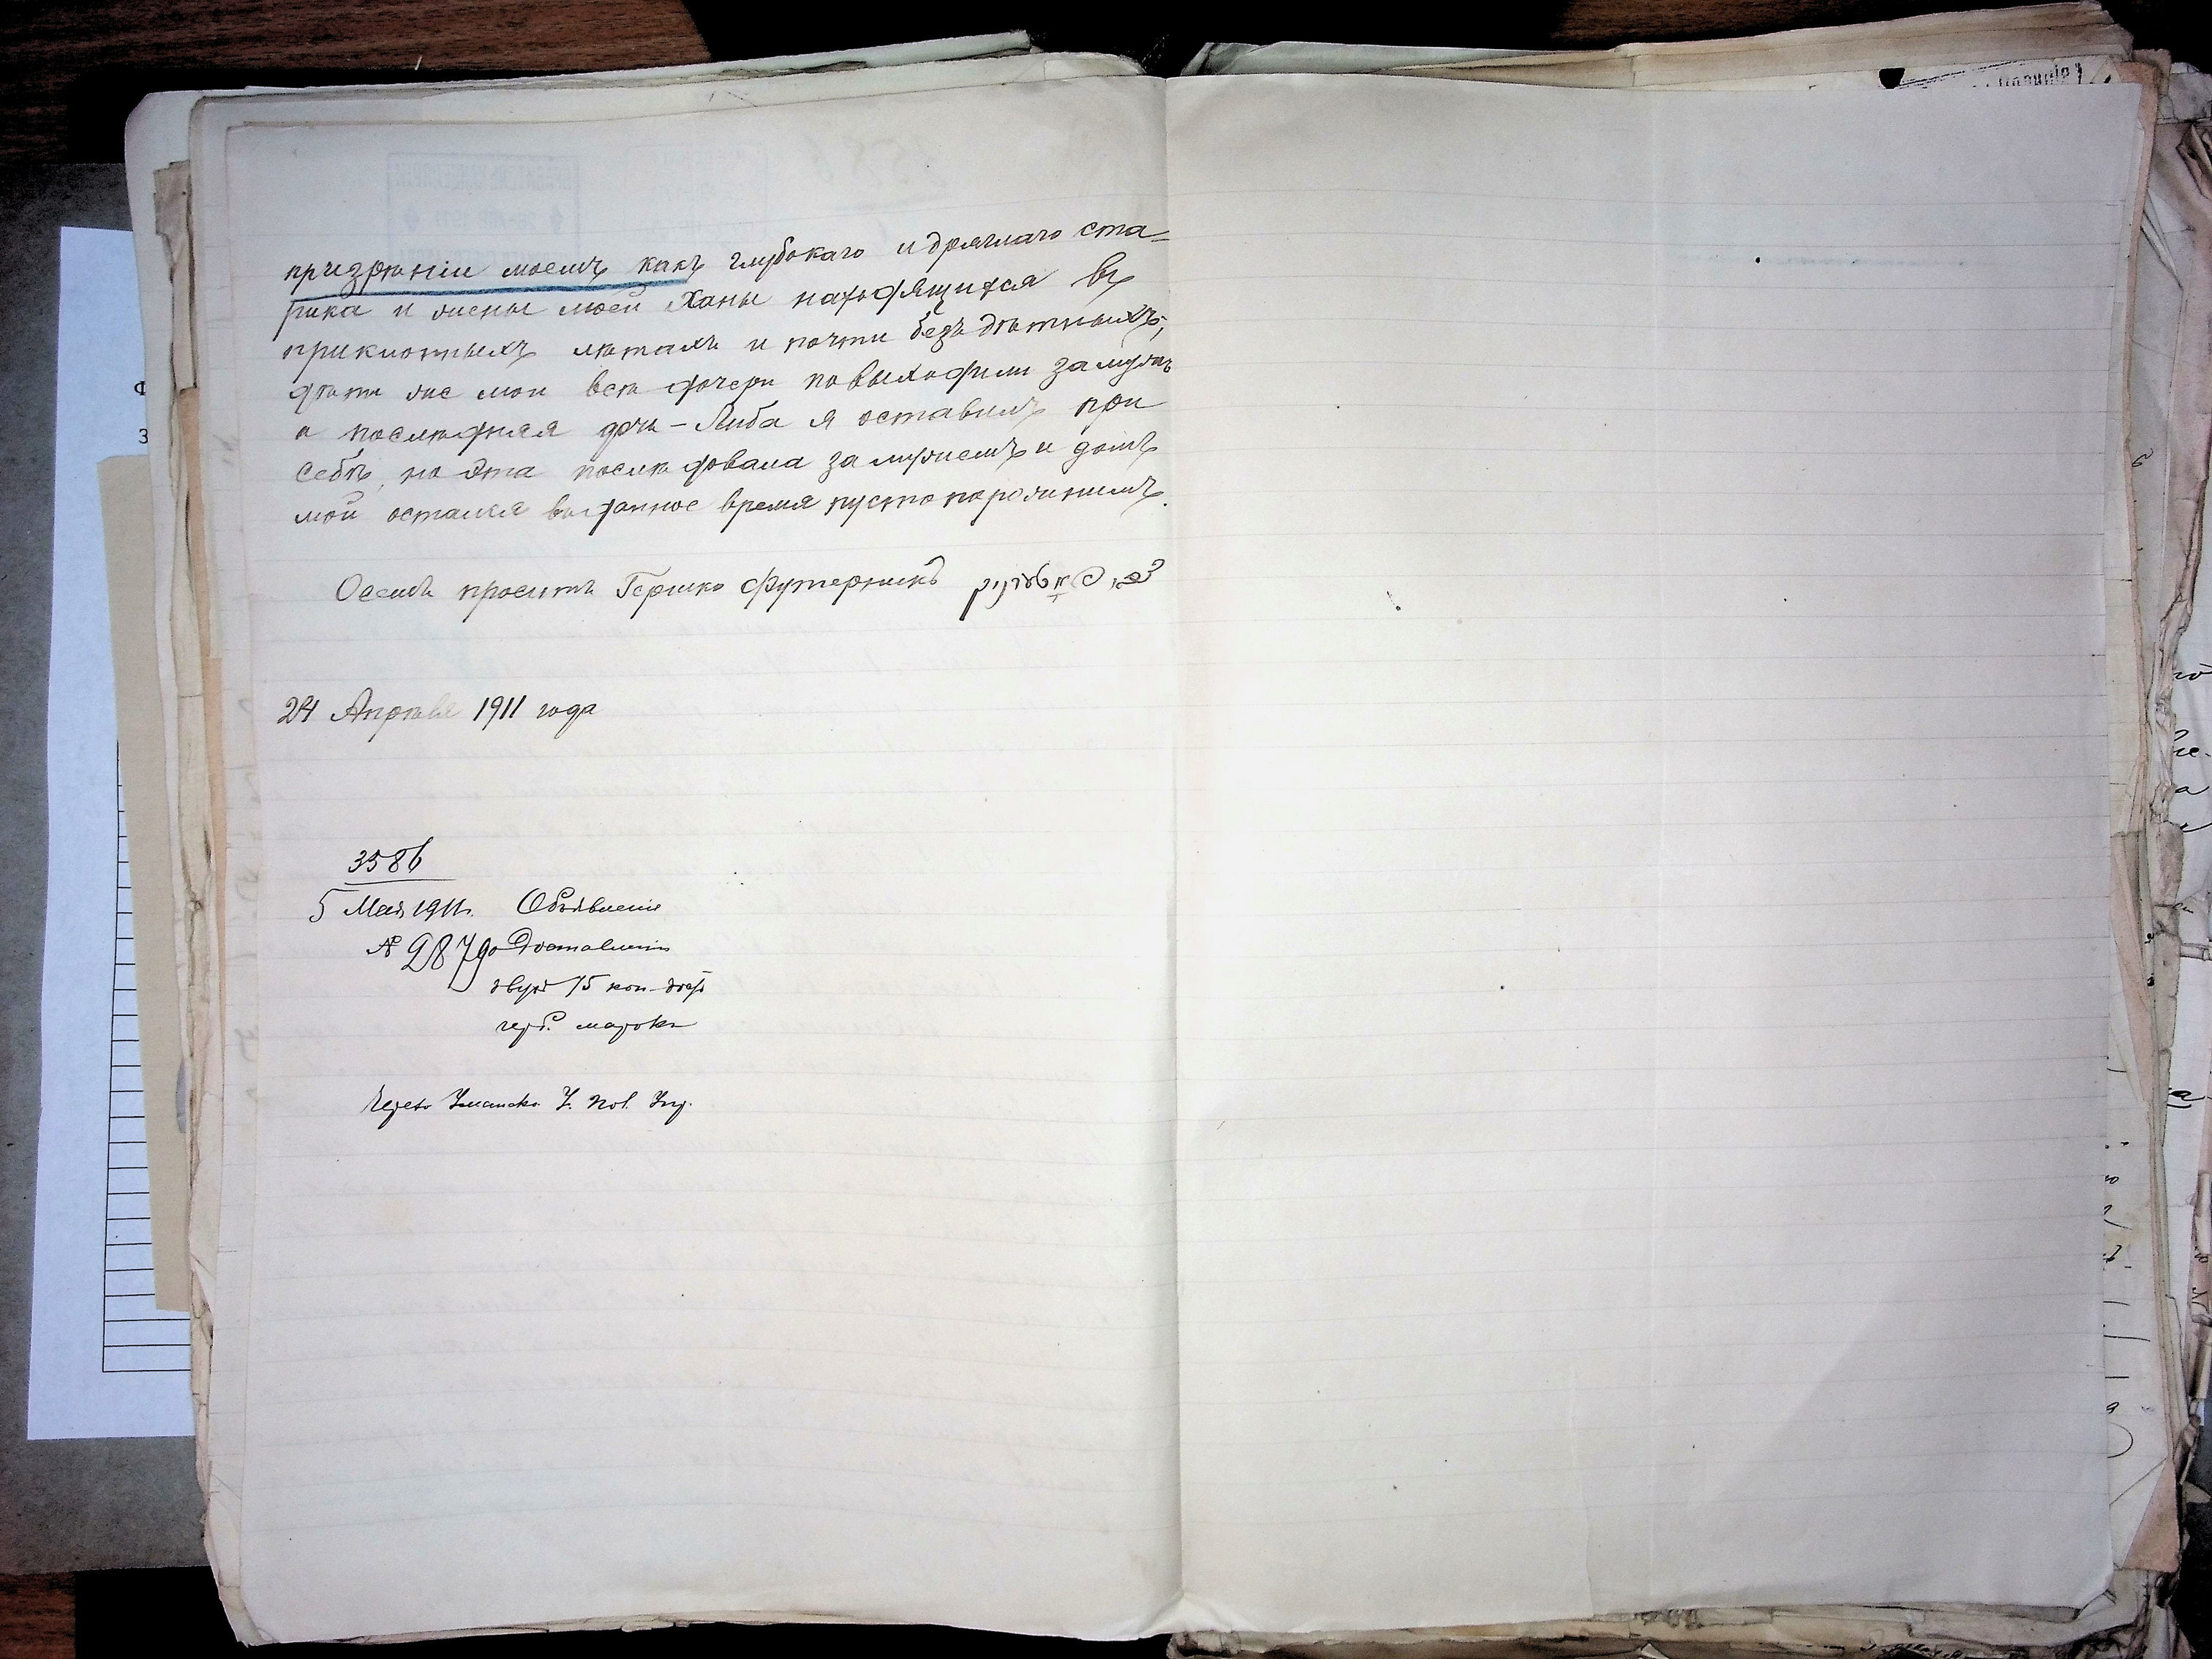 призрѣніи моемъ какъ глубокаго и дряхлаго ста-
рика и жены моей Ханы находящихся въ
приклонныхъ лѣтахъ и почти бездѣтныхъ,
дѣти же мои всѣ дочери повыходили замужъ
и послѣдняя дочь - Либа я оставилъ при
себѣ, но эта послѣдовала за мужемъ и домъ
мой остался въ данное время пустопорожнимъ.
О семъ проситъ Гершко Футерникъ
24 Апрѣля 1911 года
3586
5 Мая 1911 г. Объявленіе
№ 2879 о доставленіи
двухъ 75 коп. дост.
герб. марокъ
Черезъ Уманско. У. Пол. Упр.